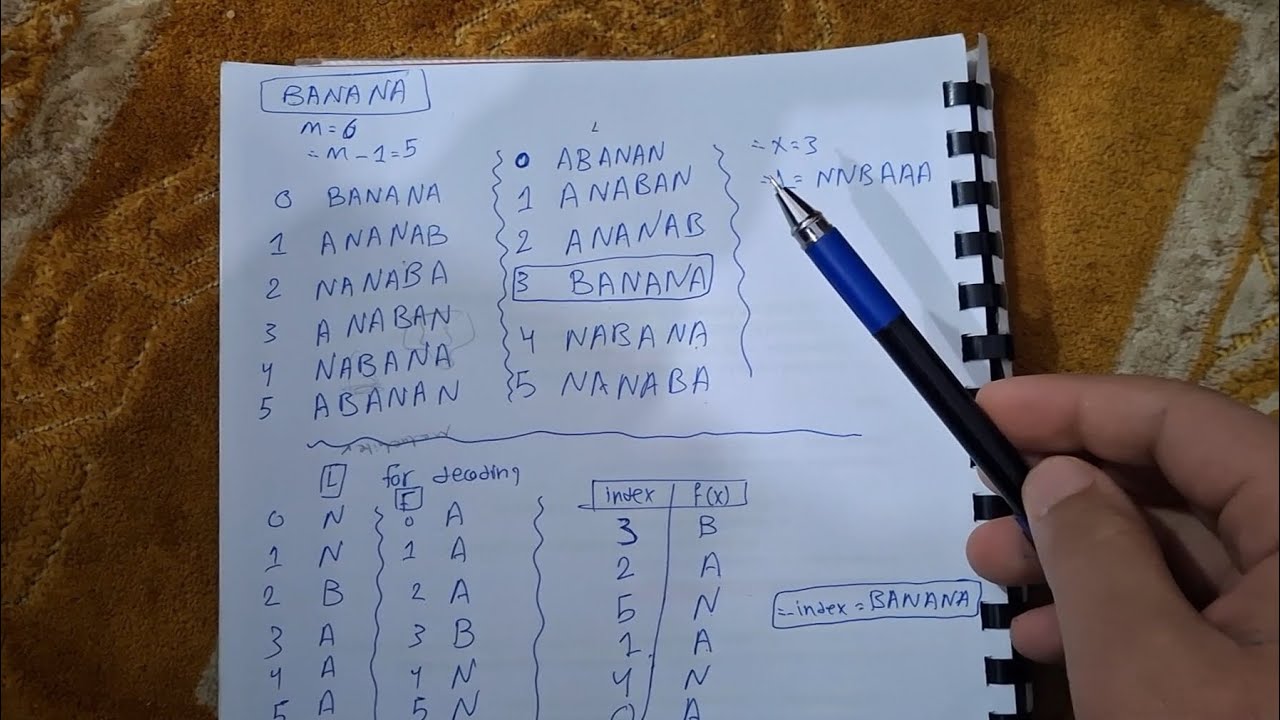 BANANA
m=6
= m-1=5
0 BANANA
1 ANANAB
2 NANABA
3 ANABAN
4 NABANA
5 ABANAN
L
0 ABANAN
1 ANABAN
2 ANANAB
3 BANANA
4 NABANA
5 NANABA
= X=3
= NNBAAA
L for decoding
F
0 N 0 A
1 N 1 A
2 B 2 A
3 A 3 B
4 A 4 N
5 A 5 N
index f(x)
3 B
2 A
5 N
1 A
4 N
0 A
=index=BANANA